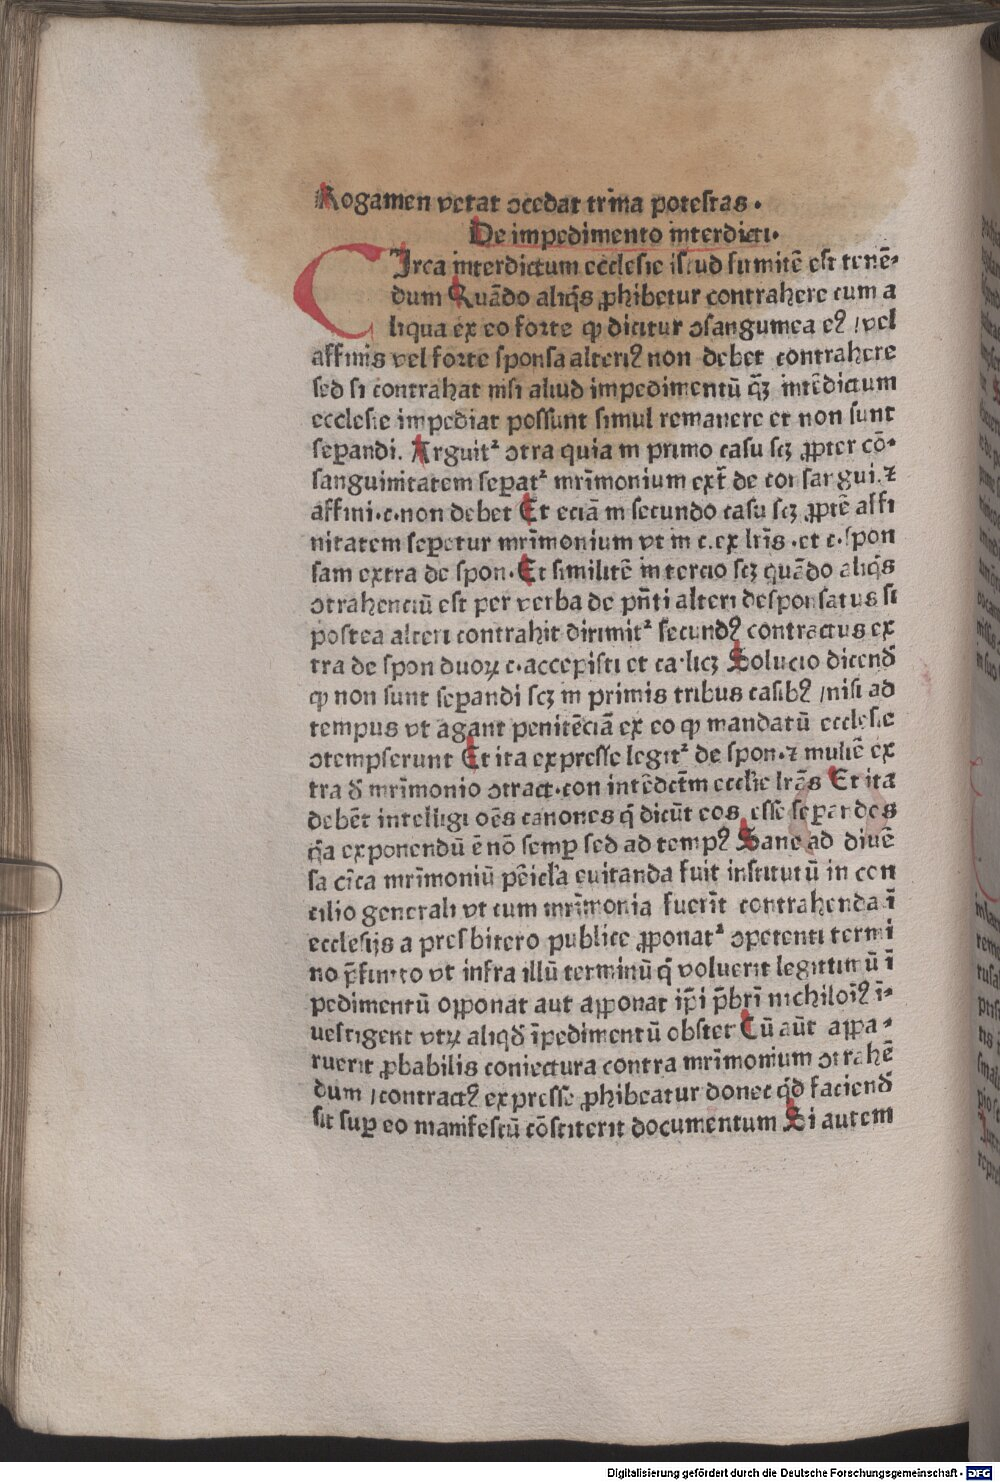 Rogamen vetat ↄcedat trina potestas.
De impedimento interdicti.
CIrca interdictum ecclesie istud sumitē est tenē-
dum Quādo aliq̄s ꝓhibetur contrahere cum a
liqua ex eo forte ꝙ dicitur ↄsanguinea eꝰ / vel
affinis vel forte sponsa alteriꝰ non debet contrahere
sed si contrahat nisi aliud impedimentū q̄ꝫ intēdictum
ecclesie impediat possunt simul remanere et non sunt
seꝑandi. Arguitᷣ ↄtra quia in primo casu scꝫ ꝓpter cō-
sanguinitatem seꝑatᷣ mr̄imonium ext̄ de con sangui. ⁊
affini.c.non debet Et eciā in secundo casu scꝫ ꝓptē affi
nitatem seꝑetur mr̄imonium vt in c.ex lr̄is .et c.spon
sam extra de spon. Et similitē in tercio scꝫ quādo aliq̄s
ↄtrahenciū est per verba de pn̄ti alteri desponsatus si
postea alteri contrahit dirimitᷣ secundꝰ contractus ex
tra de spon duoꝝ c.accepisti et ca.licꝫ Solucio dicend̄
ꝙ non sunt seꝑandi scꝫ in primis tribus casibꝰ / nisi ad
tempus vt agant penitēciā ex eo ꝙ mandatū ecclesie
ↄtempserunt Et ita expresse legitᷣ de spon.⁊ muliē ex
tra d̄ mr̄imonio ↄtract.con intēdctm̄ eccl̄ie lrās Et ita
debēt intelligi oēs canones q̄ dicūt eos esse seꝑandos
q̄a exponendū ē nō semꝑ sed ad tempꝰ Sane ad diuē
sa cīca mr̄imoniū pēicl̄a euitanda fuit institutū in con
cilio generali vt cum mr̄imonia fuerīt contrahenda ī
ecclesijs a presbitero publice ꝓponatᷣ ↄpetenti termi
no p̄finito vt infra illū terminū q̄ voluerit legittimū ī
pedimentū oꝑponat aut aꝑponat ip̄i p̄br̄i nichiloīꝰ ī-
uestigent vtꝝ aliqd̄ īpedimentū obstet Cū aūt aꝑpa-
ruerit ꝓbabilis coniectura contra mr̄imonium ↄtrahē
dum / contractꝰ expresse ꝓhibeatur donec q̄d faciend̄
sit suꝑ eo manifestū cōstiterit documentum Si autem
Digitalisierung gefördert durch die Deutsche Forschungsgemeinschaft - DFG